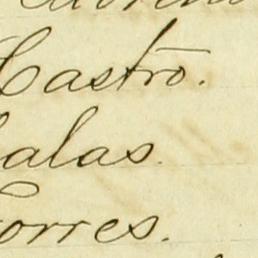 Castro.
alas.
orres.